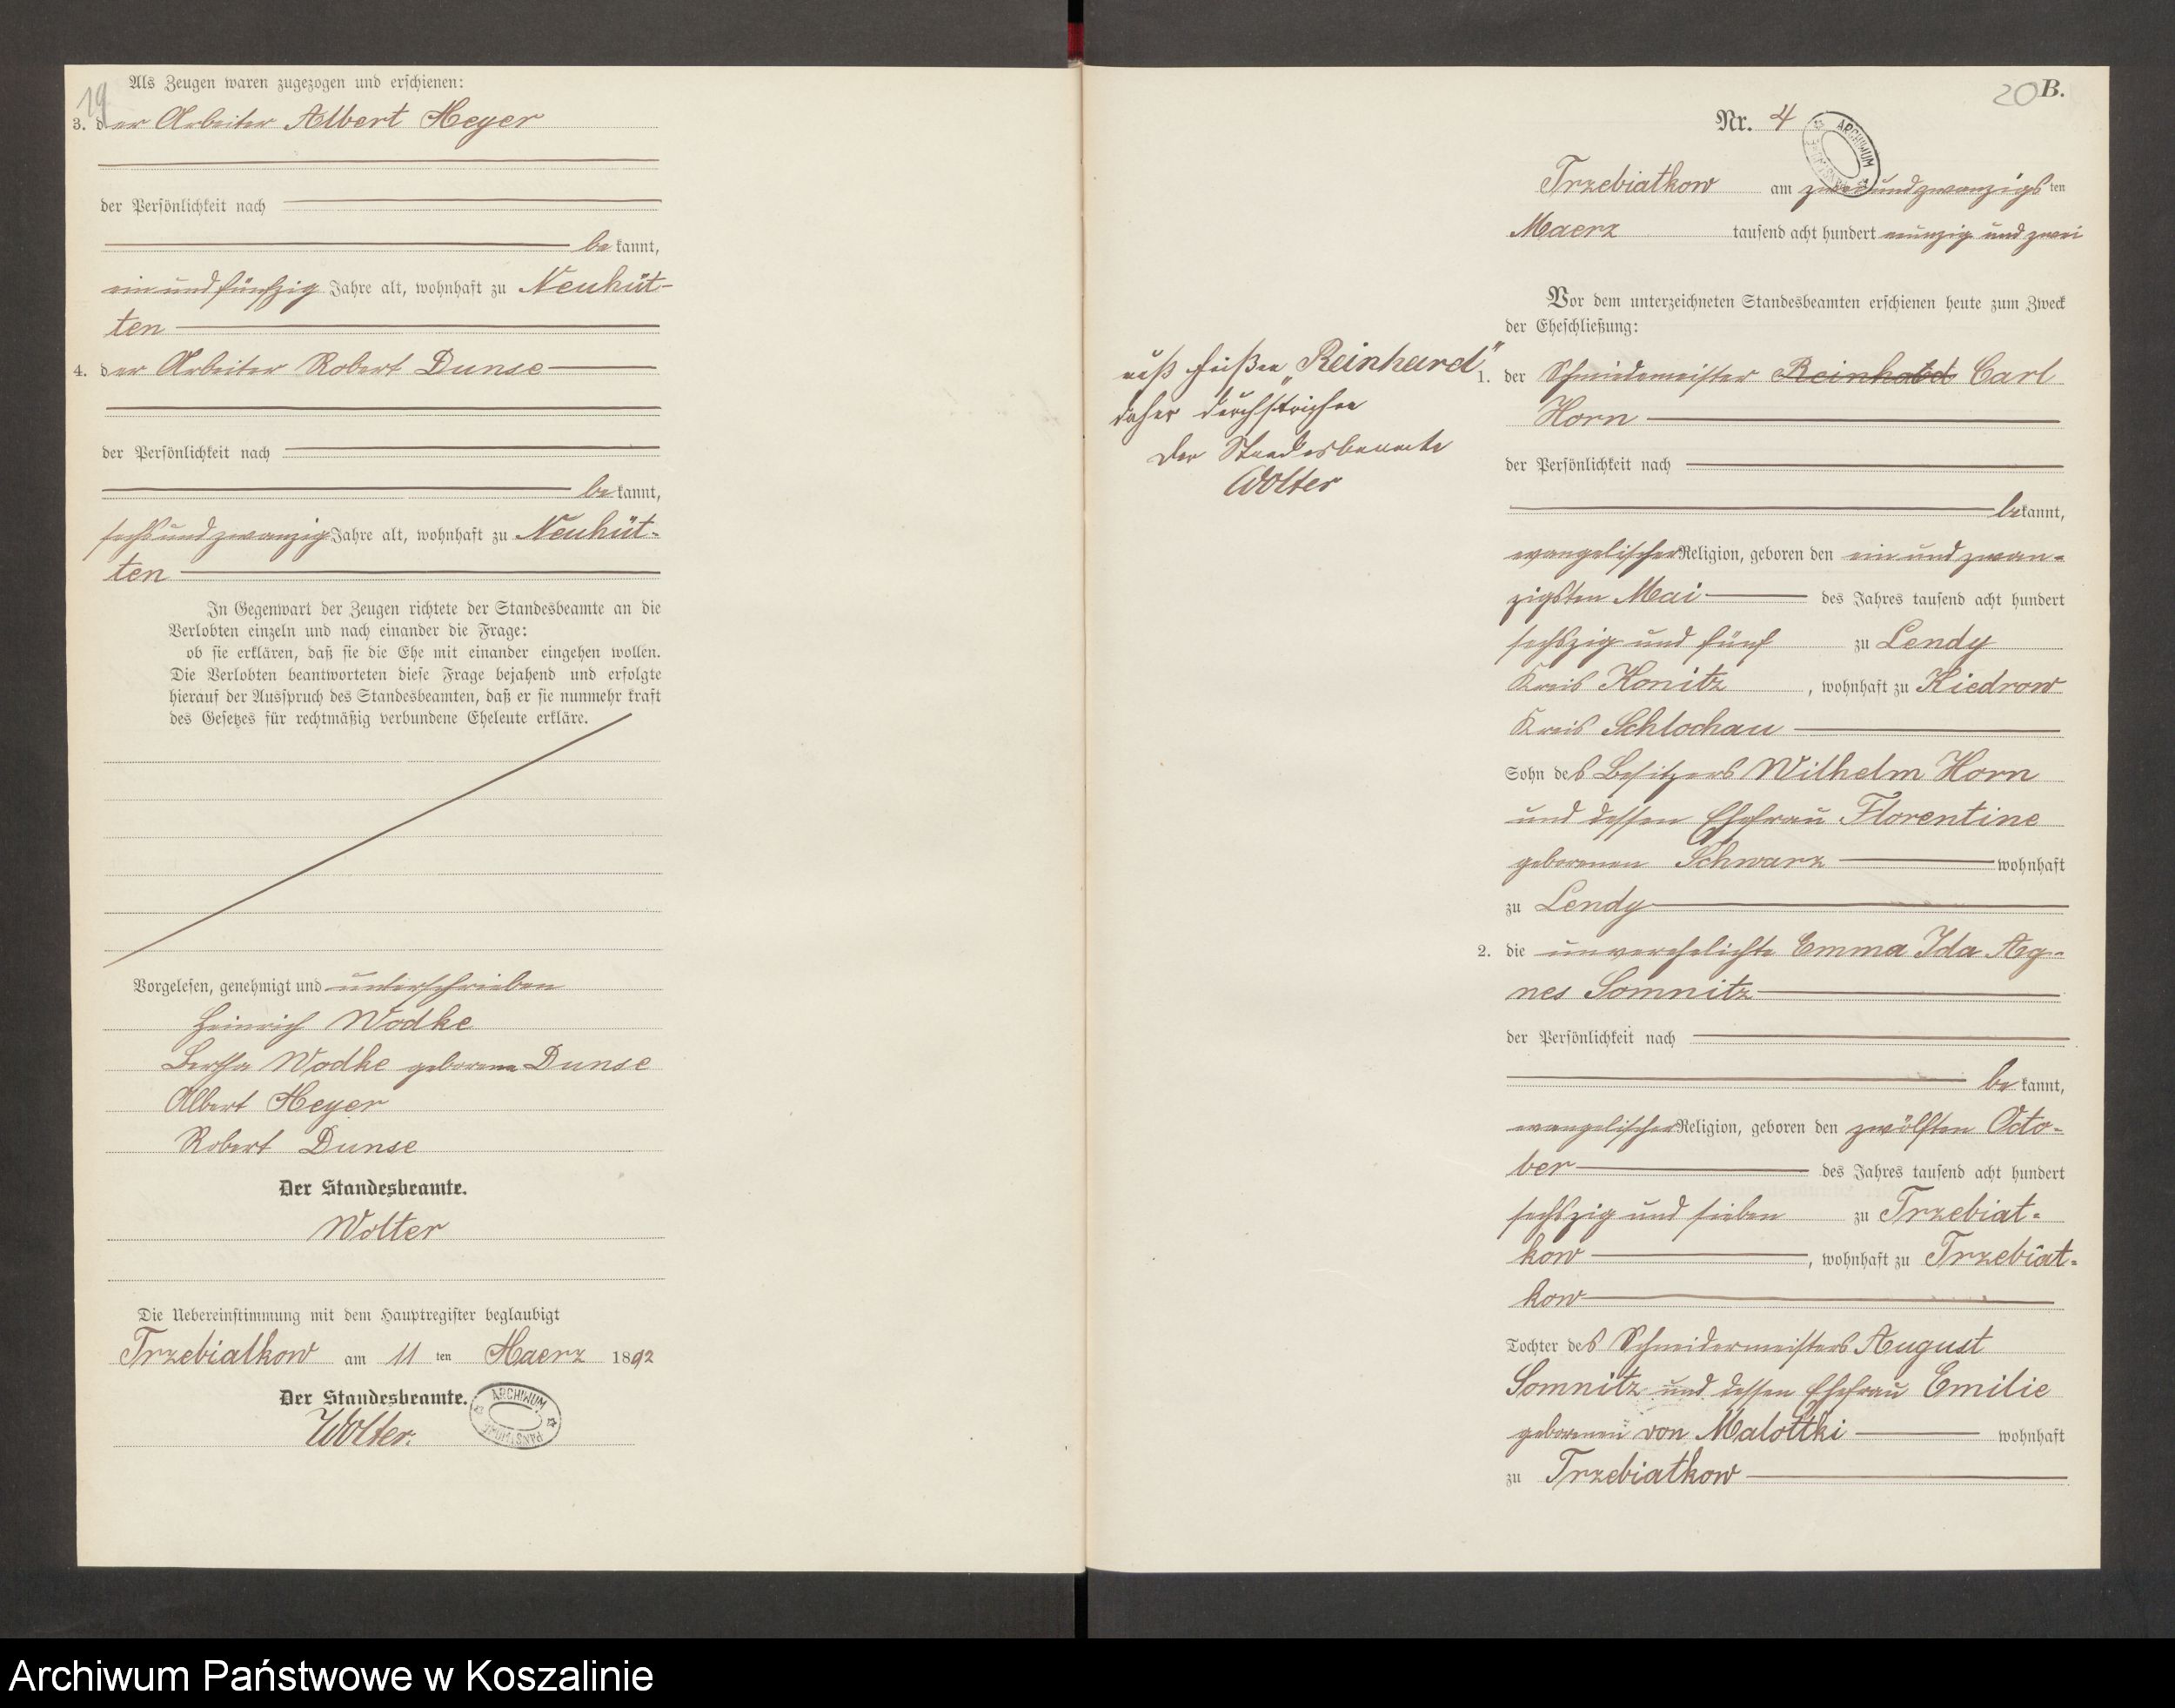 19
Als Zeugen waren zugezogen und erschienen:
3. der Arbeiter Albert Heyer
der Persönlichkeit nach
bekannt,
ein und fünfzig Jahre alt, wohnhaft zu Neuhüt-
ten
4. der Arbeiter Robert Dunse
der Persönlichkeit nach
bekannt,
sechs und zwanzig Jahre alt, wohnhaft zu Neuhüt-
ten
In Gegenwart der Zeugen richtete der Standesbeamte an die
Verlobten einzeln und nach einander die Frage:
ob sie erklären, daß sie die Ehe mit einander eingehen wollen.
Die Verlobten beantworteten diese Frage bejahend und erfolgte
hierauf der Ausspruch des Standesbeamten, daß er sie nunmehr kraft
des Gesetzes für rechtmäßig verbundene Eheleute erkläre.
Vorgelesen, genehmigt und unterschrieben
Heinrich Wodke
Bertha Wodke geborene Dunse
Albert Heyer
Robert Dunse
Der Standesbeamte.
Wolter
Die Uebereinstimmung mit dem Hauptregister beglaubigt
Trzebiatkow am 11 ten Maerz 1892
Der Standesbeamte.
Wolter.
ARCHIWUM PAŃSTWOWE
20 B.
Nr. 4
ARCHIWUM
Trzebiatkow am zwei und zwanzigs ten
Maerz tausend acht hundert neunzig und zwei
Vor dem unterzeichneten Standesbeamten erschienen heute zum Zweck
der Eheschließung:
muß heißen „Reinhard"
daher durchstrichen
Der Standesbeamte
Wolter
1. der Schmiedemeister Reinhold Carl
Horn
der Persönlichkeit nach
bekannt,
evangelischer Religion, geboren den ein und zwan-
zigsten Mai des Jahres tausend acht hundert
sechszig und fünf zu Lendy
Kreis Konitz, wohnhaft zu Kiedrow
Kreis Schlochau
Sohn des Besitzers Wilhelm Horn
und dessen Ehefrau Florentine
geborenen Schwarz wohnhaft
zu Lendy
2. die unverehelichte Emma Ida Ag-
nes Somnitz
der Persönlichkeit nach
bekannt,
evangelischer Religion, geboren den zwölften Octo-
ber des Jahres tausend acht hundert
sechszig und sieben zu Trzebiat-
kow, wohnhaft zu Trzebiat-
kow
Tochter des Schneidermeisters August
Somnitz und dessen Ehefrau Emilie
geborenen von Malottki wohnhaft
zu Trzebiatkow
Archiwum Państwowe w Koszalinie